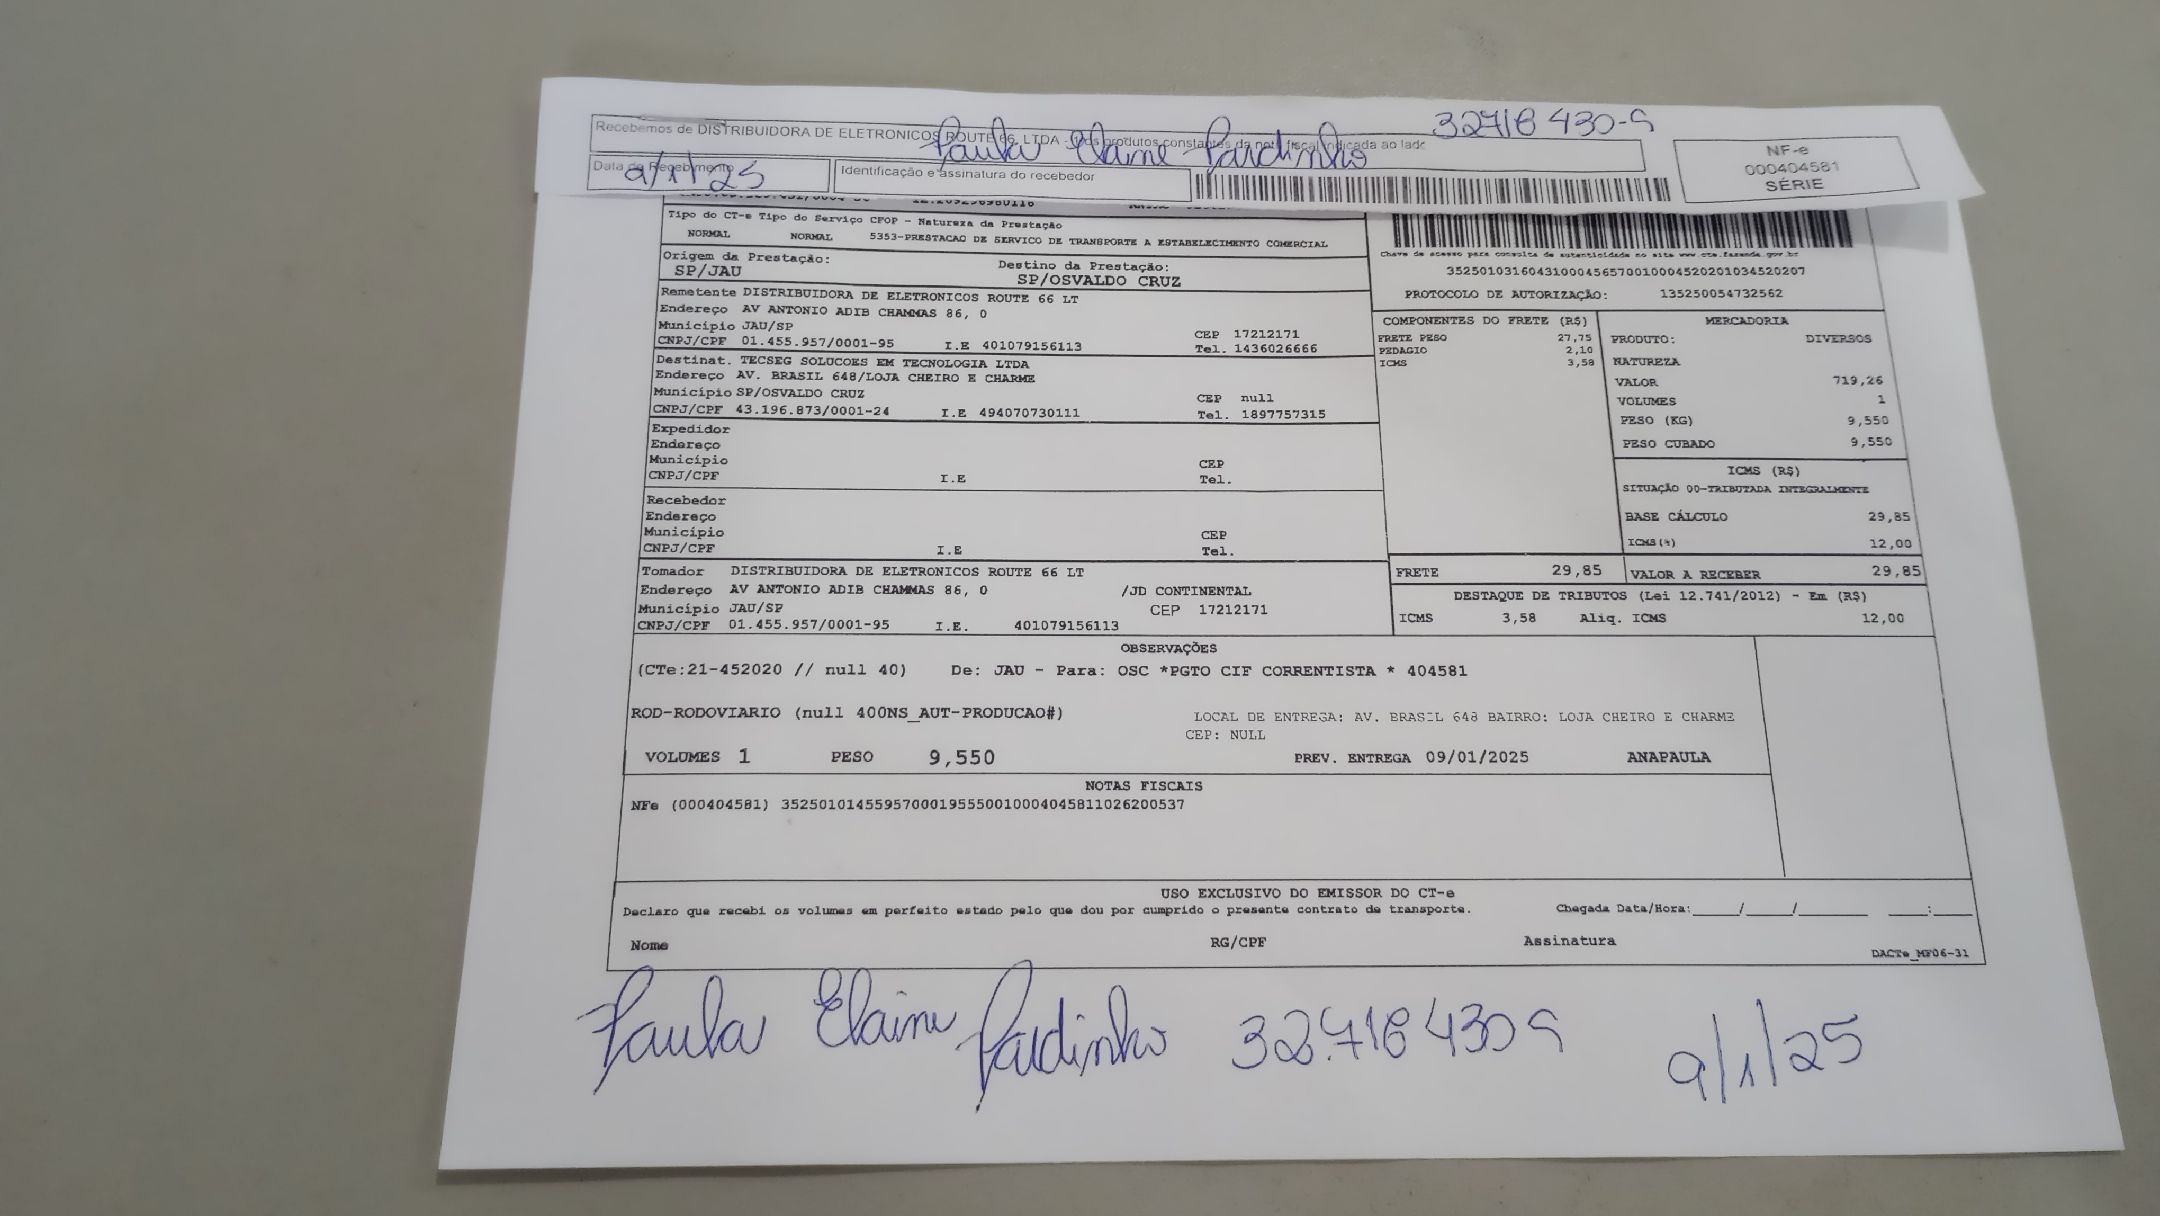 Recebemos de DISTRIBUIDORA DE ELETRONICOS ROUTE 66, LTDA - os produtos constantes da nota fiscal indicada ao lado
Paula Elaine Pardinho 32718 430-9
Data de Recebimento 9/1/25
Identificação e assinatura do recebedor
NF-e
000404581
SÉRIE
Tipo do CT-e Tipo do Serviço CFOP - Natureza da Prestação
NORMAL NORMAL 5353-PRESTACAO DE SERVICO DE TRANSPORTE A ESTABELECIMENTO COMERCIAL
Origem da Prestação: Destino da Prestação:
SP/JAU SP/OSVALDO CRUZ
Remetente DISTRIBUIDORA DE ELETRONICOS ROUTE 66 LT
Endereço AV ANTONIO ADIB CHAMMAS 86, 0
Município JAU/SP CEP 17212171
CNPJ/CPF 01.455.957/0001-95 I.E 401079156113 Tel. 1436026666
Destinat. TECSEG SOLUCOES EM TECNOLOGIA LTDA
Endereço AV. BRASIL 648/LOJA CHEIRO E CHARME
Município SP/OSVALDO CRUZ CEP null
CNPJ/CPF 43.196.873/0001-24 I.E 494070730111 Tel. 1897757315
Expedidor
Endereço
Município CEP
CNPJ/CPF I.E Tel.
Recebedor
Endereço
Município CEP
CNPJ/CPF I.E Tel.
Tomador DISTRIBUIDORA DE ELETRONICOS ROUTE 66 LT
Endereço AV ANTONIO ADIB CHAMMAS 86, 0 /JD CONTINENTAL
Município JAU/SP CEP 17212171
CNPJ/CPF 01.455.957/0001-95 I.E. 401079156113
Chave de acesso para consulta de autenticidade no site www.cte.fazenda.gov.br
35250103160431000456570010004520201034520207
PROTOCOLO DE AUTORIZAÇÃO: 135250054732562
COMPONENTES DO FRETE (R$)
FRETE PESO 27,75
PEDAGIO 2,10
ICMS 3,58
MERCADORIA
PRODUTO: DIVERSOS
NATUREZA
VALOR 719,26
VOLUMES 1
PESO (KG) 9,550
PESO CUBADO 9,550
ICMS (R$)
SITUAÇÃO 00-TRIBUTADA INTEGRALMENTE
BASE CÁLCULO 29,85
ICMS(%) 12,00
FRETE 29,85 VALOR A RECEBER 29,85
DESTAQUE DE TRIBUTOS (Lei 12.741/2012) - Em (R$)
ICMS 3,58 Aliq. ICMS 12,00
OBSERVAÇÕES
(CTe:21-452020 // null 40) De: JAU - Para: OSC *PGTO CIF CORRENTISTA * 404581
ROD-RODOVIARIO (null 400NS_AUT-PRODUCAO#) LOCAL DE ENTREGA: AV. BRASIL 648 BAIRRO: LOJA CHEIRO E CHARME
CEP: NULL
VOLUMES 1 PESO 9,550 PREV. ENTREGA 09/01/2025 ANAPAULA
NOTAS FISCAIS
NFe (000404581) 35250101455957000195550010004045811026200537
USO EXCLUSIVO DO EMISSOR DO CT-e
Declaro que recebi os volumes em perfeito estado pelo que dou por cumprido o presente contrato de transporte. Chegada Data/Hora:____/____/______ ____:____
Nome RG/CPF Assinatura
DACTe_MF06-31
Paula Elaine Pardinho 32.718 430 9 9/1/25